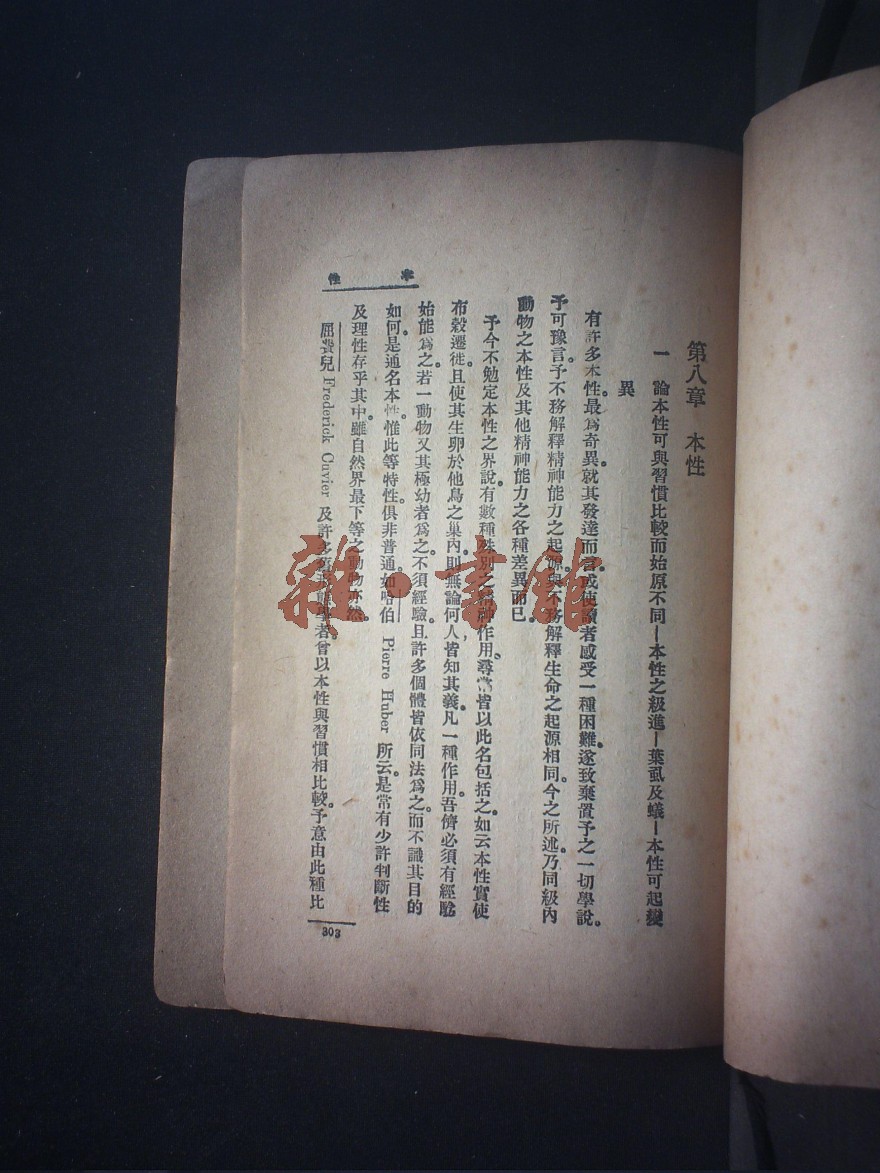 第八章 本性
一 論本性可與習慣比較而始原不同—本性之級進—葉虱及蟻—本性可起變
異
有許多本性。最爲奇異。就其發達而言。或使讀者感受一種困難。遂致棄置予之一切學說。
予可豫言。予不務解釋精神能力之起源。與不務解釋生命之起源相同。今之所述。乃同級內
動物之本性及其他精神能力之各種差異而已。
予今不勉定本性之界說。有數種殊別之精神作用。尋常皆以此名包括之。如云本性實使
布穀遷徙。且使其生卵於他鳥之巢內。則無論何人皆知其義。凡一種作用。吾儕必須有經驗
始能爲之。若一動物又其極幼者爲之。不須經驗。且許多個體皆依同法爲之。而不識其目的
如何。是通名本性。惟此等特性。俱非普通。如哈伯 Pierre Huber 所云。是常有少許判斷性
及理性存乎其中。雖自然界最下等之動物亦然。
屈費兒 Frederick Cuvier 及許多舊形體學者曾以本性與習慣相比較。予意由此種比
本性
303
雜·書館